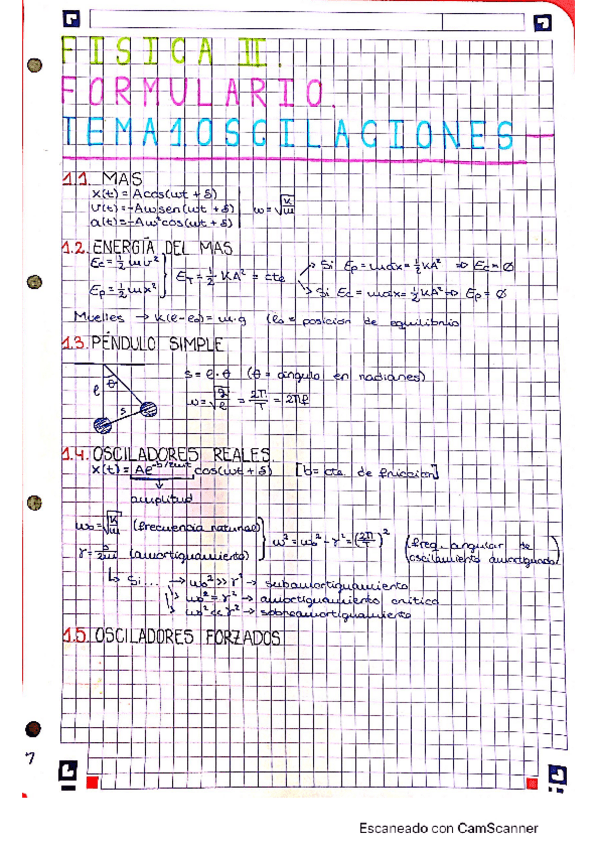 FISICA III.
FORMULARIO.
TEMA 1 OSCILACIONES
1.1. MAS
x(t) = Acos(wt + δ)
v(t) = -Awsen(wt + δ) w = √(k/m)
a(t) = -Aw²cos(wt + δ)
1.2. ENERGÍA DEL MAS
Ec = 1/2 mv²
Ep = 1/2 mx²
E_T = 1/2 · KA² = cte
Si Ep = max = 1/2 KA² ⇒ Ec = ∅
Si Ec = max = 1/2 KA² ⇒ Ep = ∅
Muelles → k(e-e₀) = m·g (e₀ = posicion de equilibrio
1.3. PÉNDULO SIMPLE
ℓ θ s
s = ℓ · θ (θ = ángulo en radianes)
w = √(g/ℓ) = 2π/T = 2πf
1.4. OSCILADORES REALES
x(t) = Ae^(-b/2mt) cos(wt + δ) [b = cte. de friccion]
amplitud
w₀ = √(k/m) (frecuencia natural)
γ = b/2m (amortiguamiento)
w² = w₀² - γ² = (2π/T)² (freq. angular de
oscilamiento amortiguado)
↳ Si... → w₀² >> γ² → subamortiguamiento
→ w₀² = γ² → amortiguamiento crítico
→ w₀² << γ² → sobreamortiguamiento
1.5. OSCILADORES FORZADOS
Escaneado con CamScanner